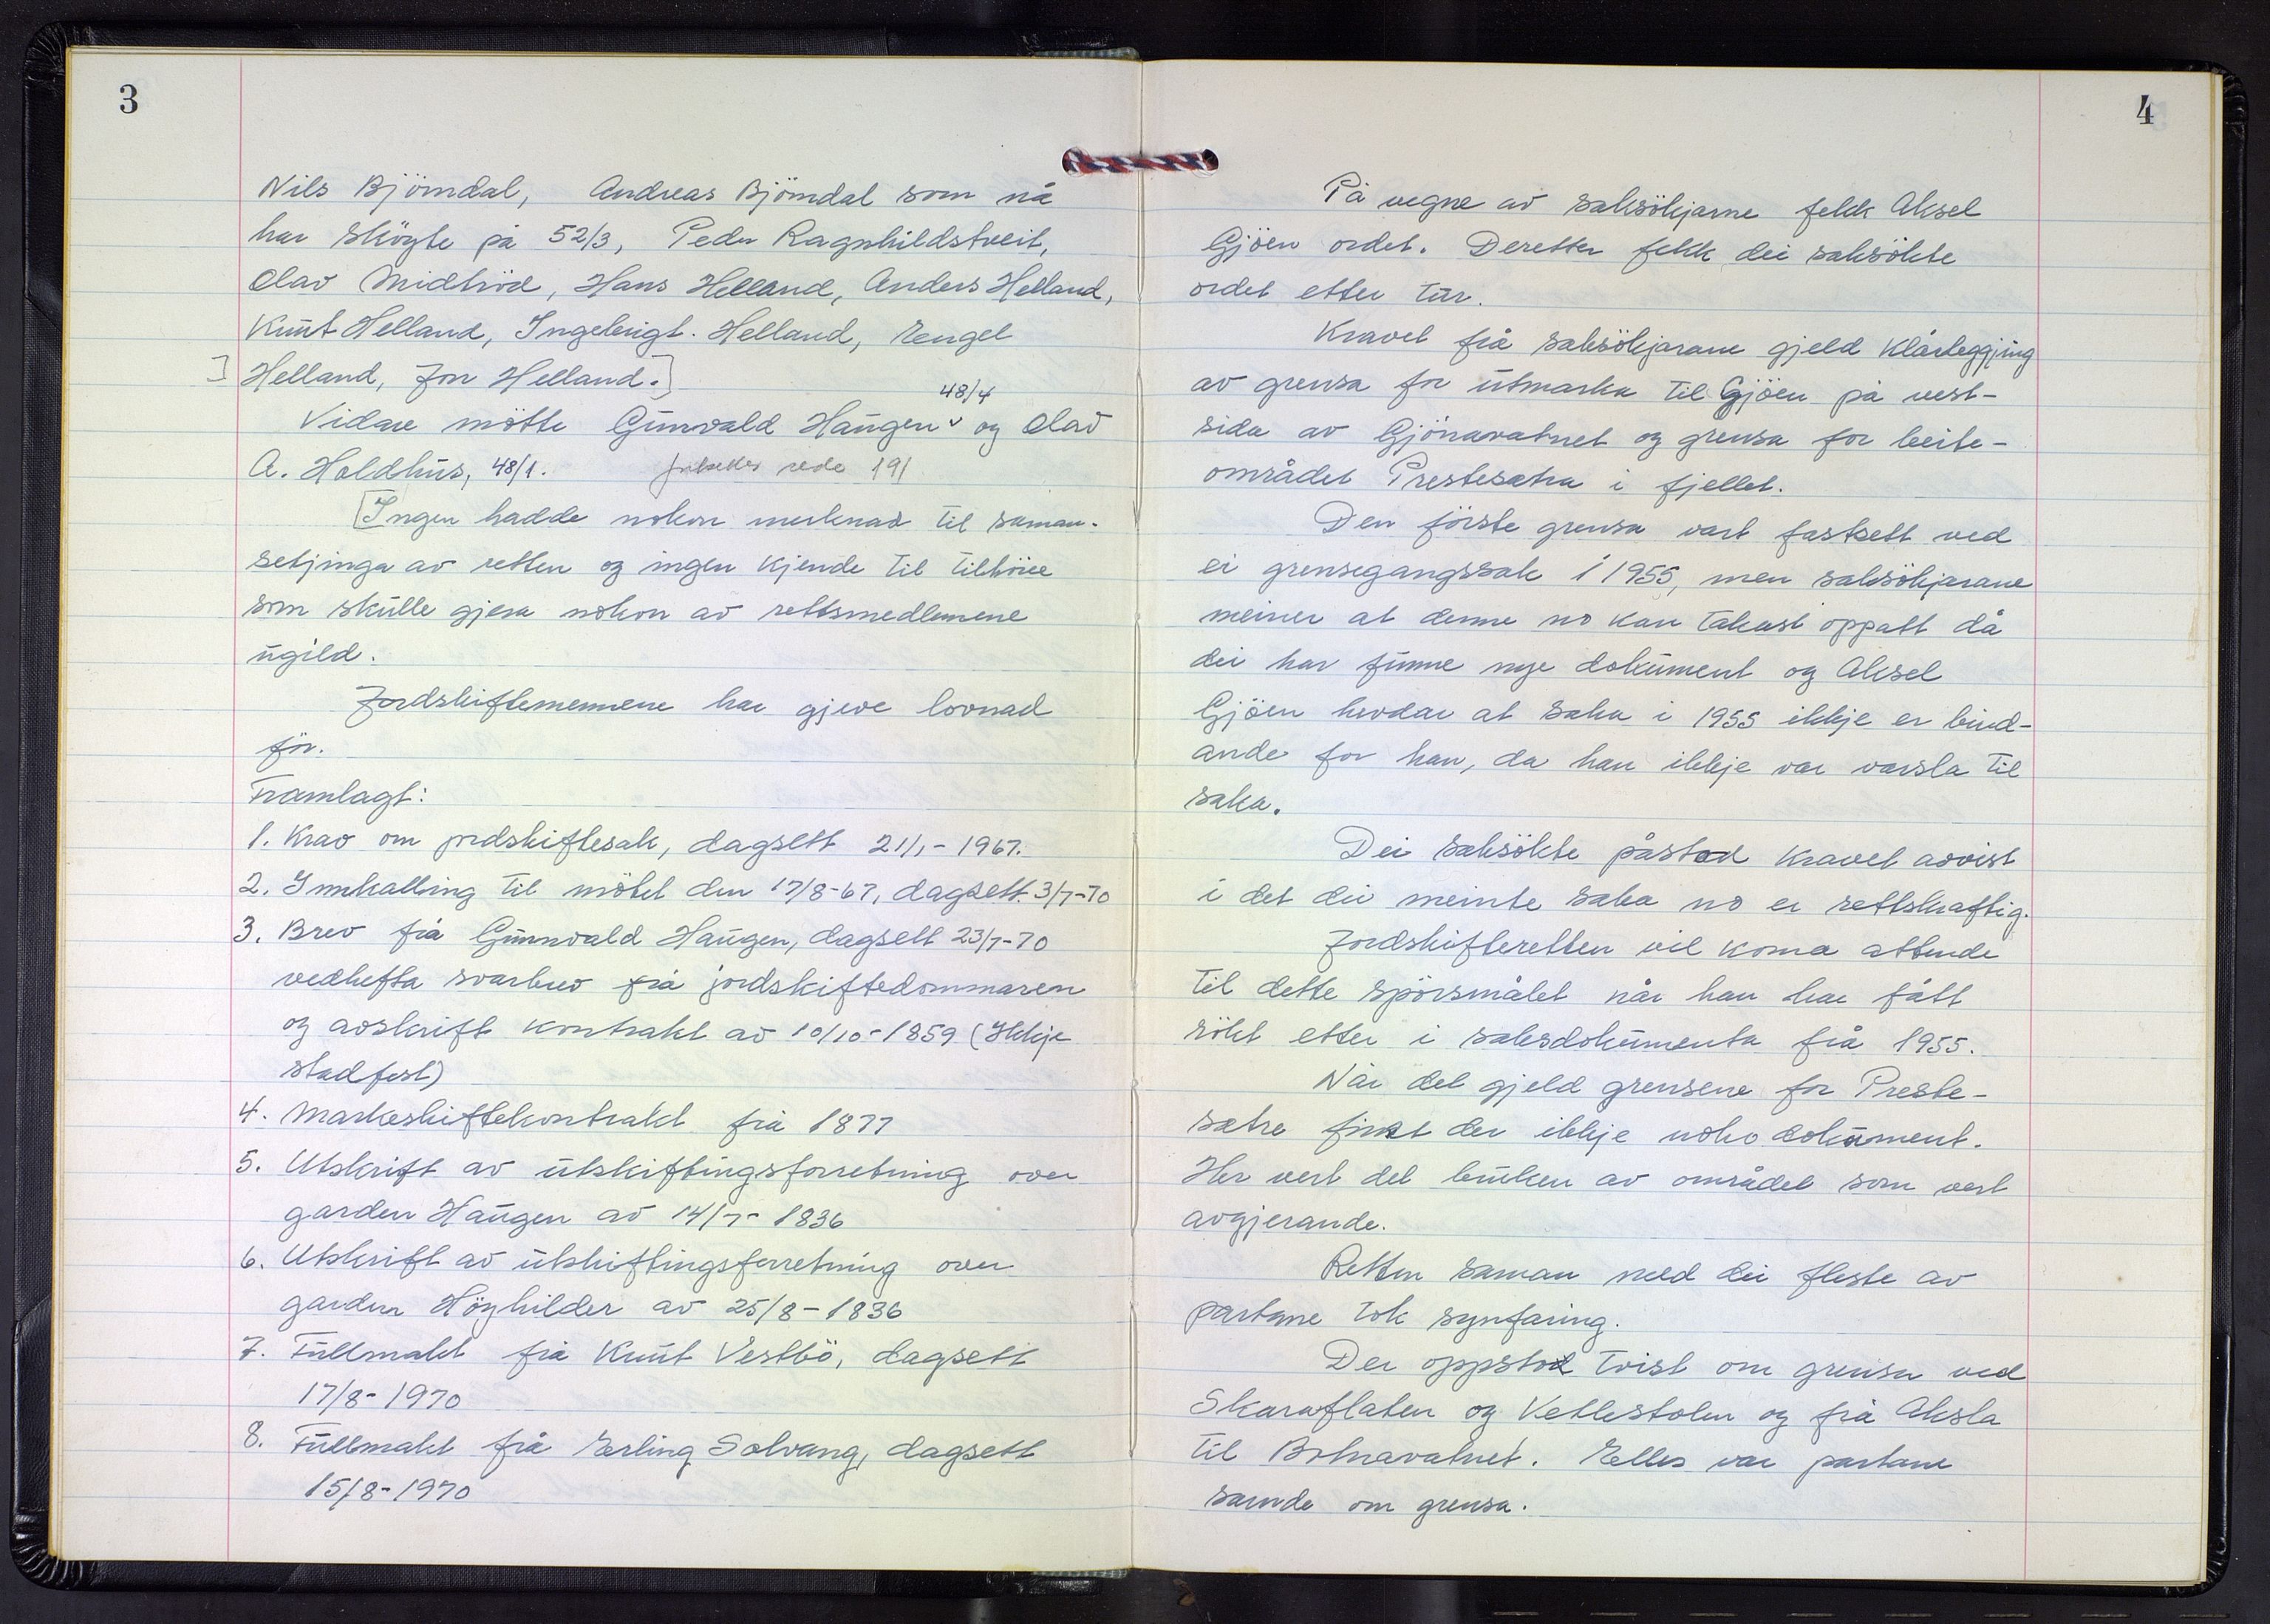 3
Nils Bjömdal, Andreas Bjömdal som nå
har sköyte på 52/3, Peder Ragnhildstveit,
Olav Midtröd, Hans Helland, Anders Helland,
Knut Helland, Ingebrigt. Helland, Engel
Helland, Jon Helland.]
48/4
Vidare mötte Gunvald Haugen og Olav
A. Holdhus, 48/1. side 191
[Ingen hadde nokon merknad til saman-
setjinga av retten og ingen kjende til tilhöve
som skulle gjera nokon av rettsmedlemene
ugild.
Jordskiftemennene har gjeve lovnad
för.
Framlagt:
1. Krav om jordskiftesak, dagsett 21/1-1967.
2. Innkalling til mötet den 17/8-67, dagsett 3/7-70
3. Brev frå Gunnvald Haugen, dagsett 23/7-70
vedhefta svarbrev frå jordskiftedommaren
og avskrift kontrakt av 10/10-1859 (Ikkje
stadfest)
4. Markeskiftekontrakt frå 1877
5. Utskrift av utskiftingsforretning over
garden Haugen av 14/7-1836
6. Utskrift av utskiftingsforretning over
garden Höyhilder av 25/8-1836
7. Fullmakt frå Knut Vestbö, dagsett
17/8-1970
8. Fullmakt frå Erling Solvang, dagsett
15/8-1970
4
På vegne av saksökjarne fekk Aksel
Gjöen ordet. Deretter fekk dei saksökte
ordet etter tur.
Kravet frå saksökjarane gjeld klårleggjing
av grensa for utmarka til Gjöen på vest-
sida av Gjönavatnet og grensa for beite-
området Prestesætra i fjellet.
Den förste grensa vart fastsett ved
ei grensegangssak i 1955, men saksökjarane
meiner at denne no kan takast oppatt då
dei har funne nye dokument og Aksel
Gjöen hevdar at saka i 1955 ikkje er bind-
ande for han, da han ikkje var varsla til
saka.
Dei saksökte påstod kravet avvist
i det dei meinte saka no er rettskraftig.
Jordskifteretten vil koma attende
til dette spörsmålet når han har fått
sökt etter i saksdokumenta frå 1955.
Når det gjeld grensene for Preste-
sætre finst der ikkje noko dokument.
Her vert det bruken av området som vert
avgjerande.
Retten saman med dei fleste av
partane tok synfaring.
Der oppstod tvist om grensa ved
Skaraflaten og Vetlestolen og frå Aksla
til Botnavatnet. Elles var partane
samde om grensa.